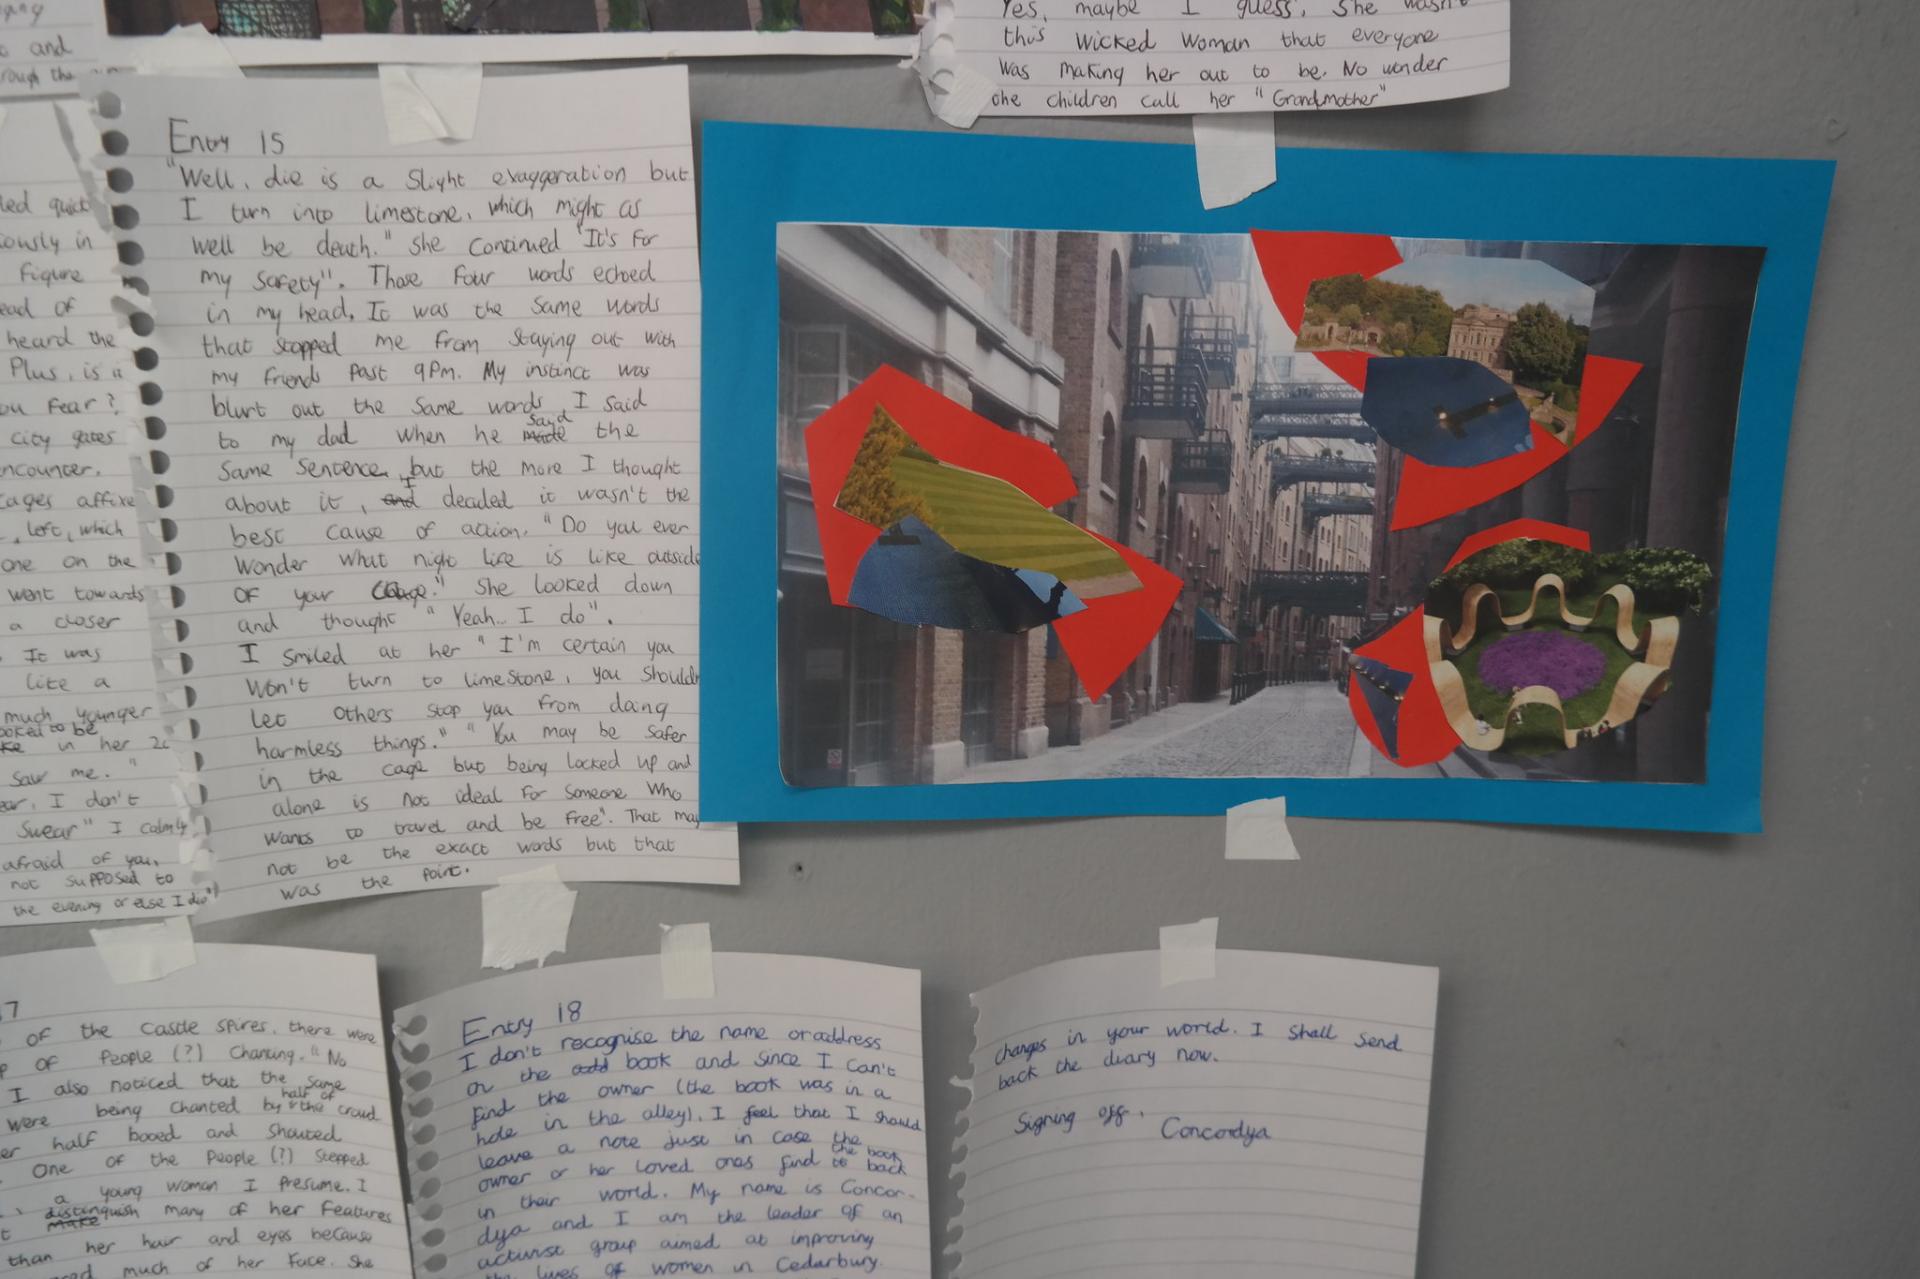 Yes, maybe I guess. She wasn't
this wicked woman that everyone
was making her out to be. No wonder
the children call her "Grandmother"
and
rough the
led quick
iously in
Figure
ead of
heard the
Plus, is
ou fear?
city gates
ncounter.
cages affixe
left, which
one on the
went towards
a closer
It was
like a
much younger
ooked to be
in her 20
saw me. "
ear, I don't
swear" I calmly
afraid of you,
not supposed to
the evening or else I die"
Entry 15
"Well, die is a slight exaggeration but
I turn into limestone, which might as
well be death." She continued "It's for
my safety". Those four words echoed
in my head. It was the same words
that stopped me from staying out with
my friends past 9pm. My instinct was
blurt out the same words I said
to my dad when he said the
same sentence, but the more I thought
about it, I decided it wasn't the
best cause of action. "Do you ever
wonder what night life is like outside
of your cage?" She looked down
and thought "Yeah... I do".
I smiled at her "I'm certain you
won't turn to limestone, you shouldn
let others stop you from doing
harmless things." "You may be safer
in the cage but being locked up and
alone is not ideal for someone who
wants to travel and be free". That may
not be the exact words but that
was the point.
17
of the castle spires, there were
p of people (?) chanting. "No
I also noticed that the same
were being chanted by half of the crowd
er half booed and shouted
One of the people (?) stepped
a young woman I presume. I
distinguish many of her features
than her hair and eyes because
much of her face. She
Entry 18
I don't recognise the name or address
on the book and since I can't
find the owner (the book was in a
hole in the alley). I feel that I should
leave a note just in case the
owner or her loved ones find the book back
in their world. My name is Concor-
dya and I am the leader of an
activist group aimed at improving
the lives of women in Cedarbury.
changes in your world. I shall send
back the diary now.
Signing off,
Concordya